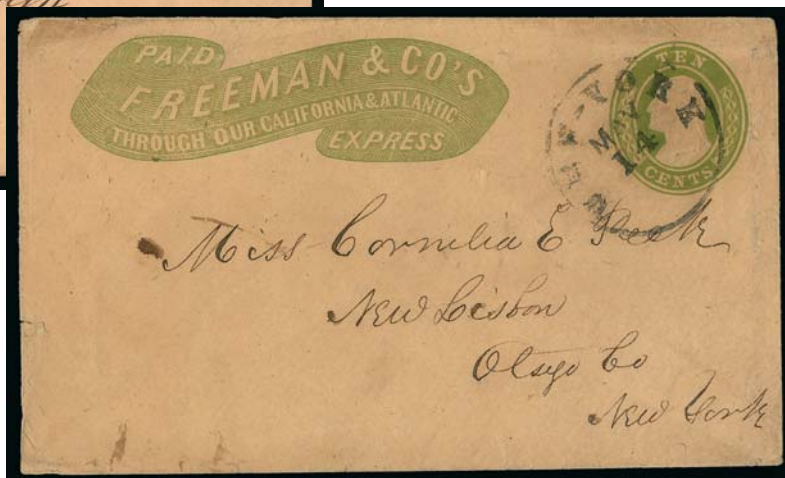 PAID
FREEMAN & CO'S
THROUGH OUR CALIFORNIA & ATLANTIC
EXPRESS
TEN
CENTS
NEW-YORK
14
Miss Cornelia E Peek
New Lisbon
Otsego Co
New York